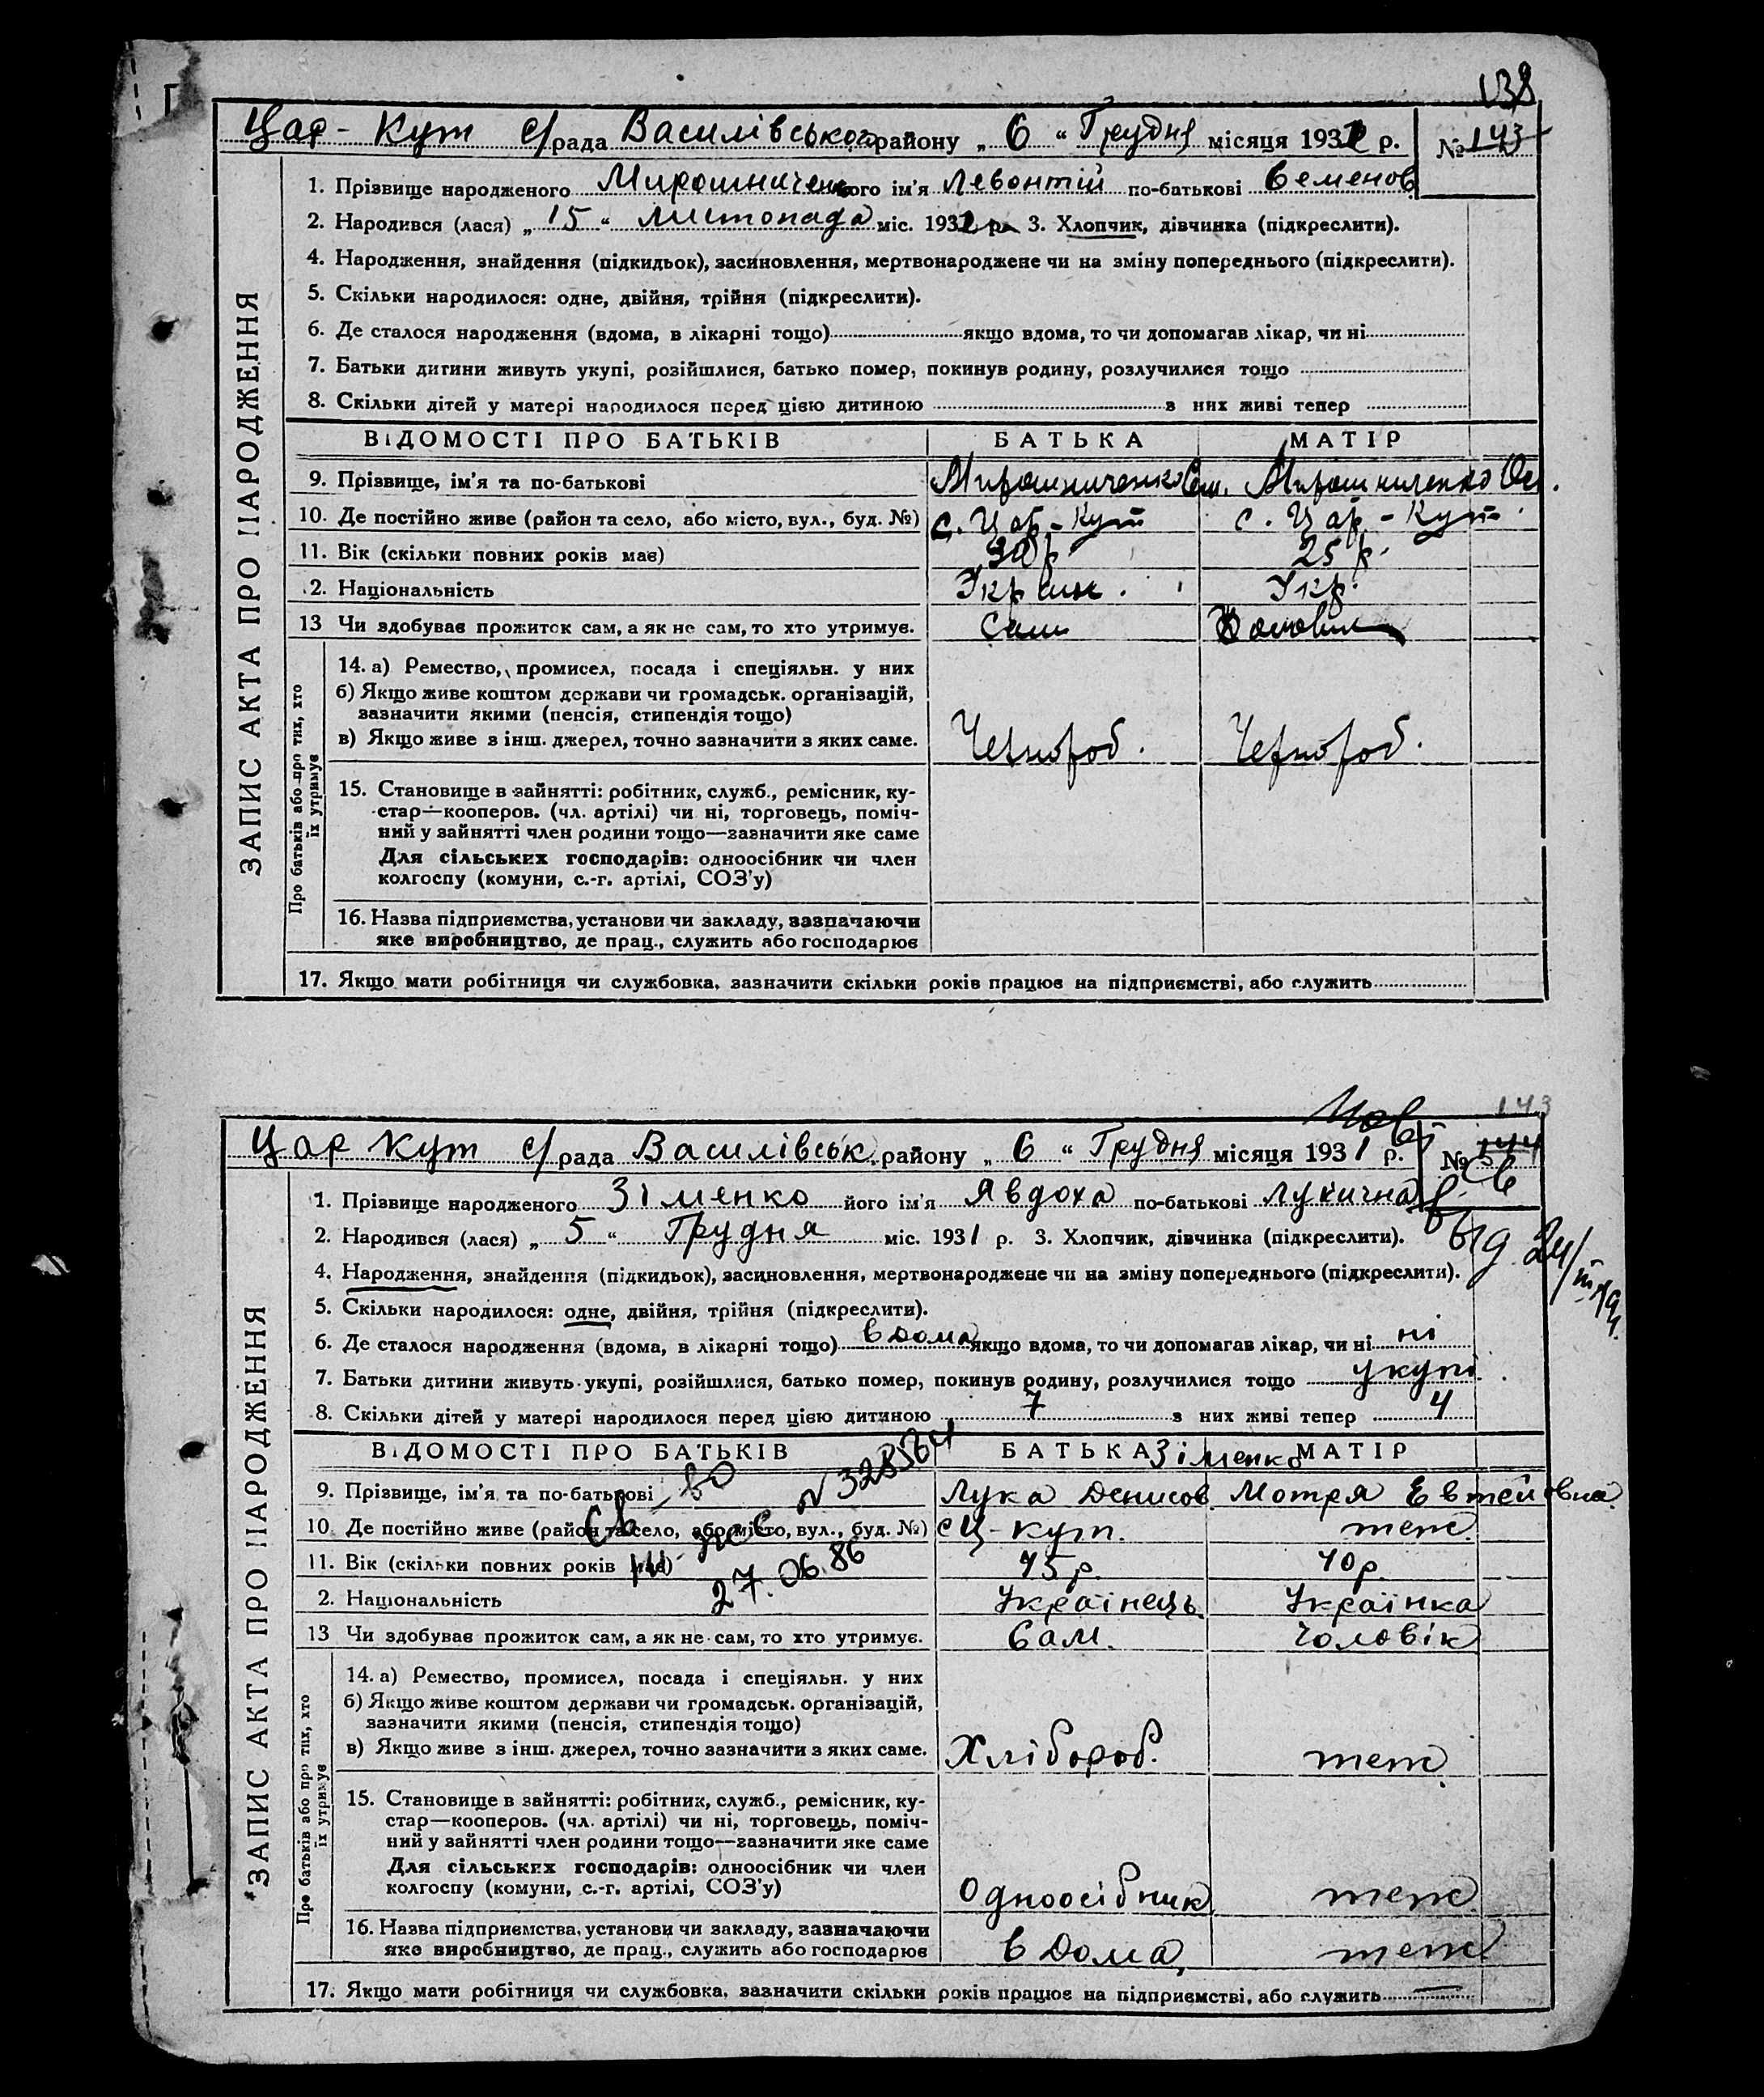 138
Цар - Кут с/рада Василівського району „ 6 “ Грудня місяця 1932 р. № 143
1. Прізвище народженого Мирошниченко його ім'я Левонтій по-батькові Семенов
2. Народився (лася) „ 15 “ листопада міс. 1932 р. 3. Хлопчик, дівчинка (підкреслити).
4. Народження, знайдення (підкидьок), засиновлення, мертвонароджене чи на зміну попереднього (підкреслити).
5. Скільки народилося: одне, двійня, трійня (підкреслити).
6. Де сталося народження (вдома, в лікарні тощо) якщо вдома, то чи допомагав лікар, чи ні
7. Батьки дитини живуть укупі, розійшлися, батько помер, покинув родину, розлучилися тощо
8. Скільки дітей у матері народилося перед цією дитиною з них живі тепер
ВІДОМОСТІ ПРО БАТЬКІВ БАТЬКА МАТІР
9. Прізвище, ім'я та по-батькові Мирошниченко Сем. Мирошниченко
10. Де постійно живе (район та село, або місто, вул., буд. №) с. Цар - Кут с. Цар - Кут
11. Вік (скільки повних років має) 30 р. 25 р.
2. Національність Україн. Укр.
13 Чи здобуває прожиток сам, а як не сам, то хто утримує. Сам Чоловік
14. а) Ремество, промисел, посада і спеціяльн. у них
б) Якщо живе коштом держави чи громадськ. організацій,
зазначити якими (пенсія, стипендія тощо)
в) Якщо живе з інш. джерел, точно зазначити з яких саме. Чернороб. Чернороб.
15. Становище в зайнятті: робітник, служб., ремісник, ку-
стар—кооперов. (чл. артілі) чи ні, торговець, поміч-
ний у зайнятті член родини тощо—зазначити яке саме
Для сільських господарів: одноосібник чи член
колгоспу (комуни, с.-г. артілі, СОЗ'у)
16. Назва підприємства, установи чи закладу, зазначаючи
яке виробництво, де прац., служить або господарює
17. Якщо мати робітниця чи службовка, зазначити скільки років працює на підприємстві, або служить
ЗАПИС АКТА ПРО НАРОДЖЕННЯ
Про батьків або про тих, хто
їх утримує
143
Цар Кут с/рада Василівськ. району „ 6 “ Грудня місяця 1931 р. № 144
1. Прізвище народженого Зіменко його ім'я Явдоха по-батькові Лукична
2. Народився (лася) „ 5 “ Грудня міс. 1931 р. 3. Хлопчик, дівчинка (підкреслити).
4. Народження, знайдення (підкидьок), засиновлення, мертвонароджене чи на зміну попереднього (підкреслити).
5. Скільки народилося: одне, двійня, трійня (підкреслити).
6. Де сталося народження (вдома, в лікарні тощо) в дома якщо вдома, то чи допомагав лікар, чи ні ні
7. Батьки дитини живуть укупі, розійшлися, батько помер, покинув родину, розлучилися тощо укупі
8. Скільки дітей у матері народилося перед цією дитиною 7 з них живі тепер 4
ВІДОМОСТІ ПРО БАТЬКІВ БАТЬКА Зіменко МАТІР
9. Прізвище, ім'я та по-батькові Лука Денисов Мотря Евтейовна
10. Де постійно живе (район та село, або місто, вул., буд. №) с Ц-кут. теж.
11. Вік (скільки повних років має) 45 р. 40 р.
2. Національність Українець Українка
13 Чи здобуває прожиток сам, а як не сам, то хто утримує. Сам. Чоловік
св-во
№ 328564
27.06.86
14. а) Ремество, промисел, посада і спеціяльн. у них
б) Якщо живе коштом держави чи громадськ. організацій,
зазначити якими (пенсія, стипендія тощо)
в) Якщо живе з інш. джерел, точно зазначити з яких саме. Хлібороб. теж.
15. Становище в зайнятті: робітник, служб., ремісник, ку-
стар—кооперов. (чл. артілі) чи ні, торговець, поміч-
ний у зайнятті член родини тощо—зазначити яке саме
Для сільських господарів: одноосібник чи член
колгоспу (комуни, с.-г. артілі, СОЗ'у) Одноосібник теж
16. Назва підприємства, установи чи закладу, зазначаючи
яке виробництво, де прац., служить або господарює в дома, теж
17. Якщо мати робітниця чи службовка, зазначити скільки років працює на підприємстві, або служить —
ЗАПИС АКТА ПРО НАРОДЖЕННЯ
Про батьків або про тих, хто
їх утримує